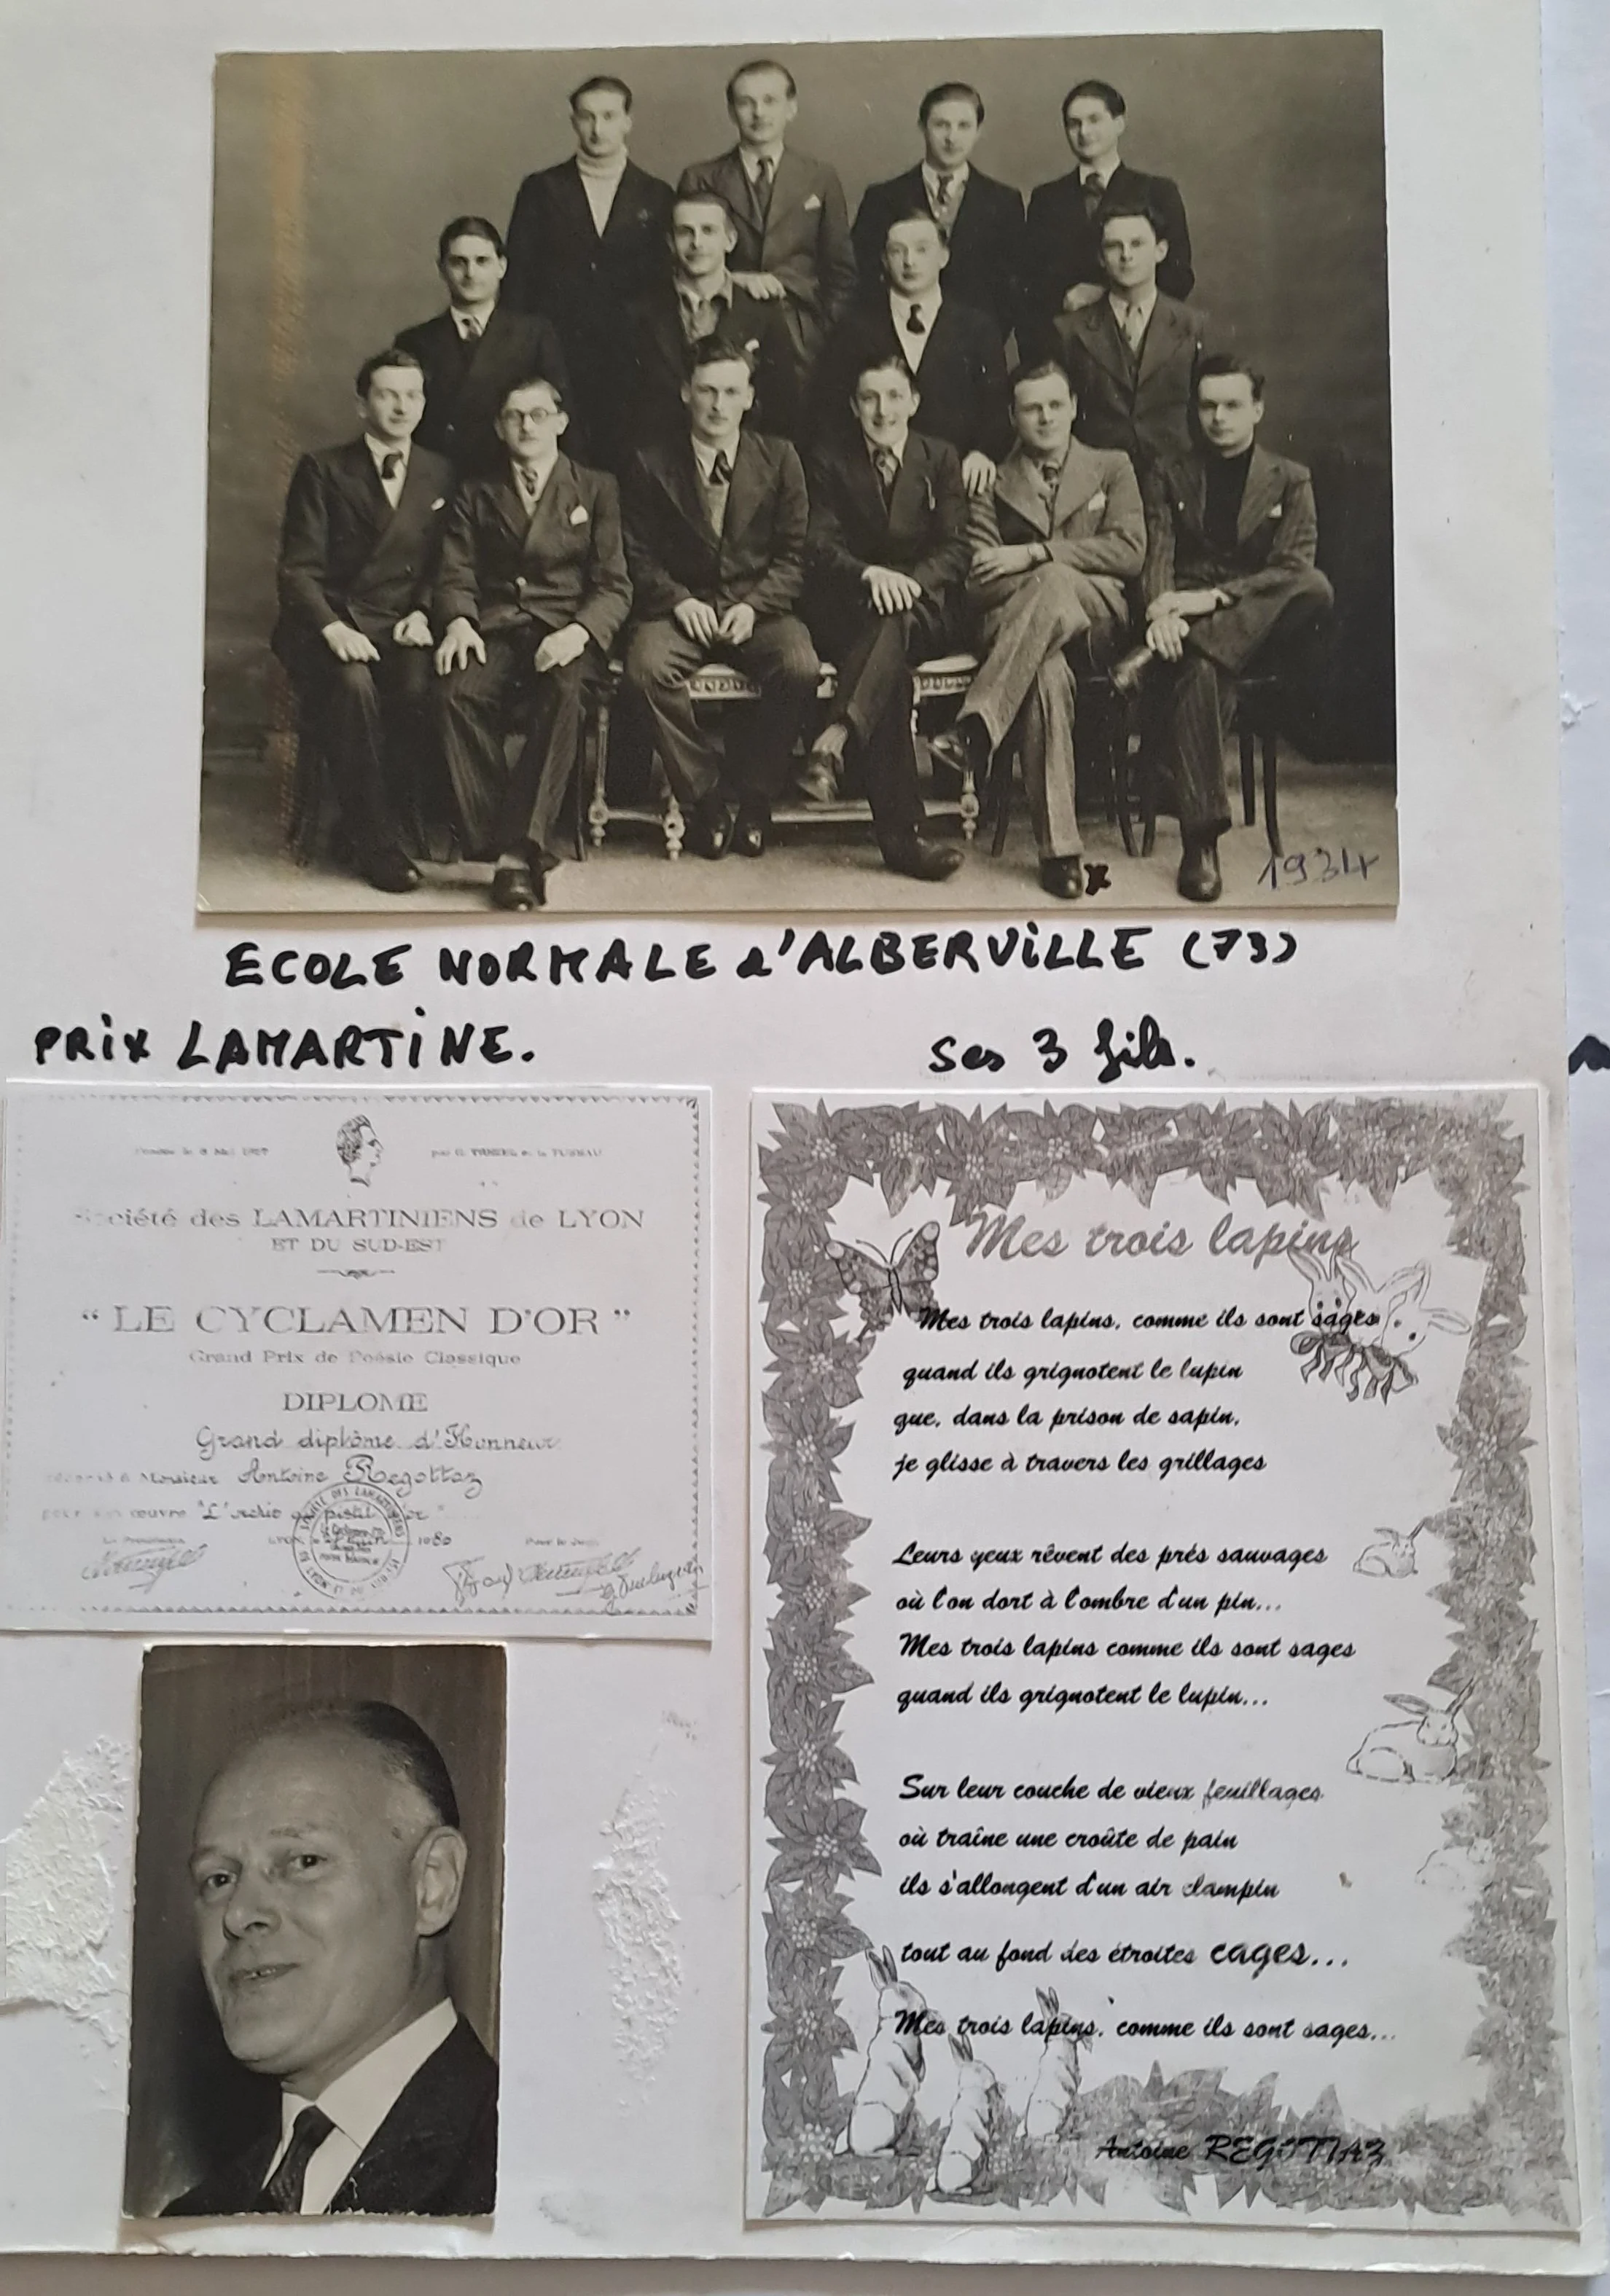 1934
ECOLE NORMALE d'ALBERVILLE (73)
PRIX LAMARTINE.
Ses 3 fils.
Société des LAMARTINIENS de LYON
ET DU SUD-EST
“ LE CYCLAMEN D'OR ”
Grand Prix de Poésie Classique
DIPLOME
Grand diplôme d'Honneur
à Monsieur Antoine Regottaz
œuvre "L'
1980
Mes trois lapins
Mes trois lapins, comme ils sont sages
quand ils grignotent le lupin
que, dans la prison de sapin,
je glisse à travers les grillages
Leurs yeux rêvent des prés sauvages
où l'on dort à l'ombre d'un pin...
Mes trois lapins comme ils sont sages
quand ils grignotent le lupin...
Sur leur couche de vieux feuillages
où traîne une croûte de pain
ils s'allongent d'un air clampin
tout au fond des étroites cages...
Mes trois lapins, comme ils sont sages...
Antoine REGOTTAZ